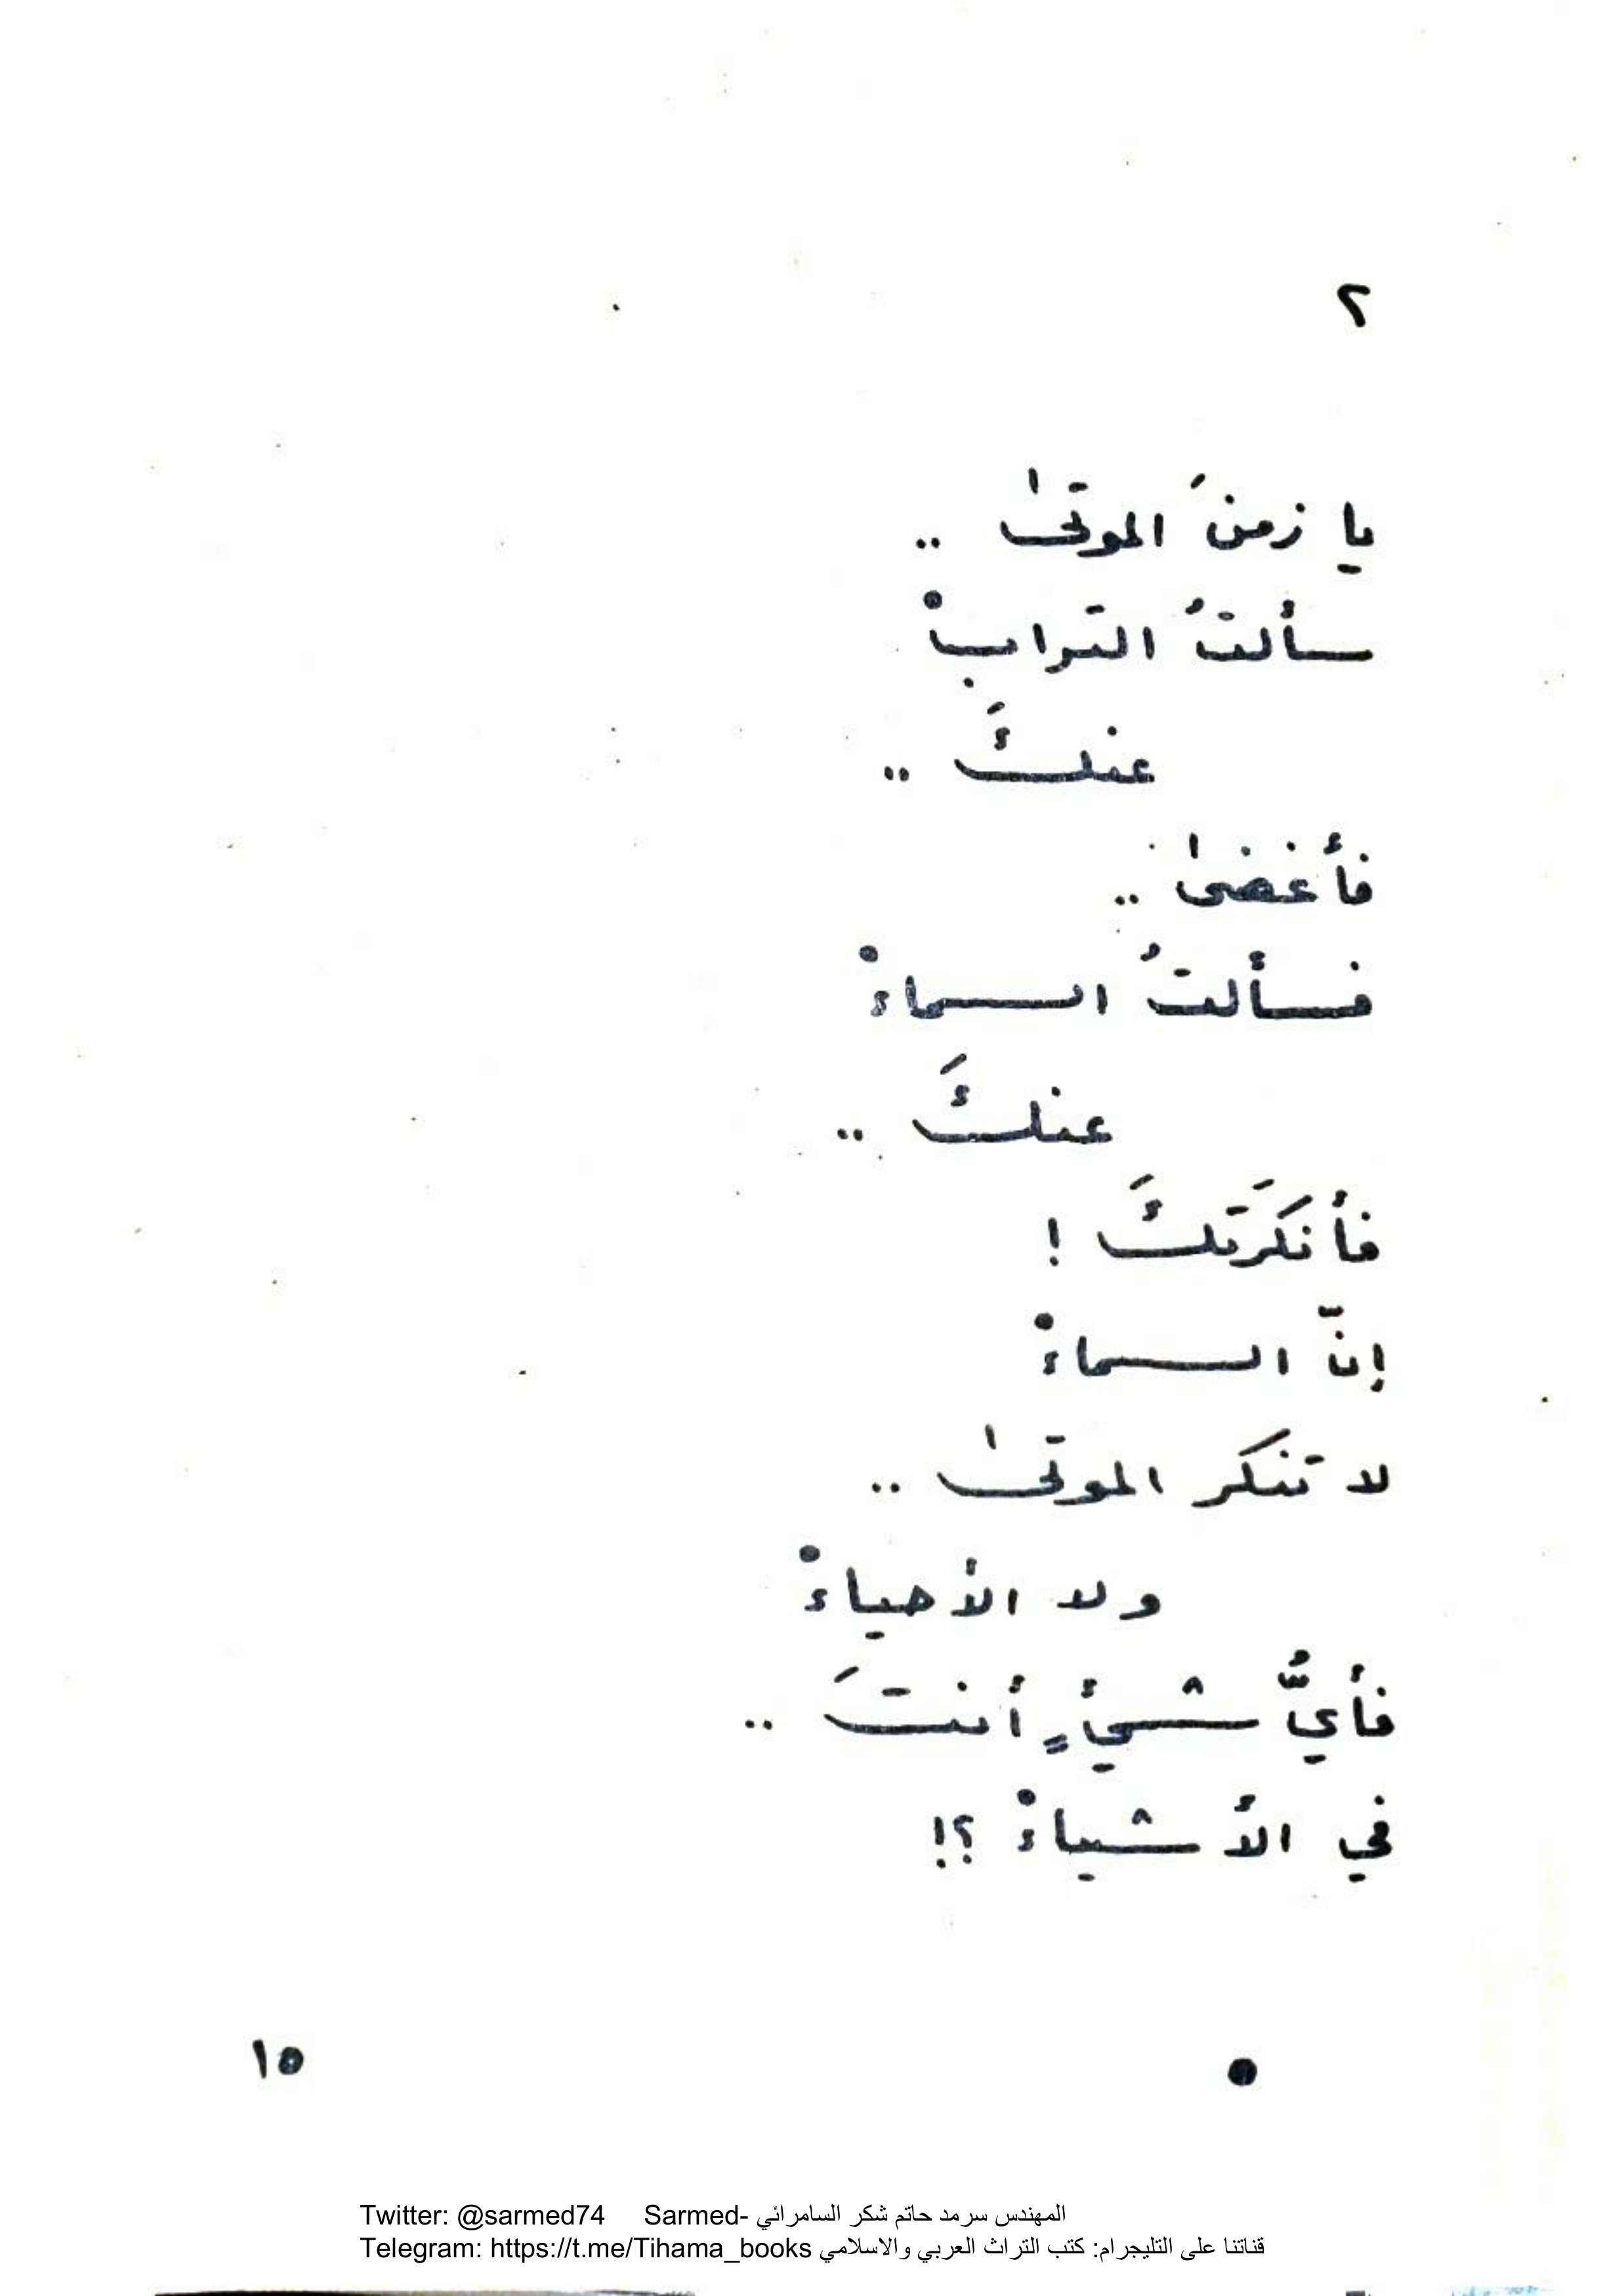 ٢
يا زمنَ الموتىٰ ..
سألتُ الترابْ
عنكَ ..
فأغضىٰ ..
فسألتُ السماءْ
عنكَ ..
فأنكَرَتكَ !
إنّ السماءْ
لا تنكر الموتىٰ ..
ولا الأحياءْ
فأيُّ شيءٍ أنتَ ..
في الأشياءْ ؟!
١٥
Twitter: @sarmed74 Sarmed- المهندس سرمد حاتم شكر السامرائي
Telegram: https://t.me/Tihama_books قناتنا على التليجرام: كتب التراث العربي والاسلامي